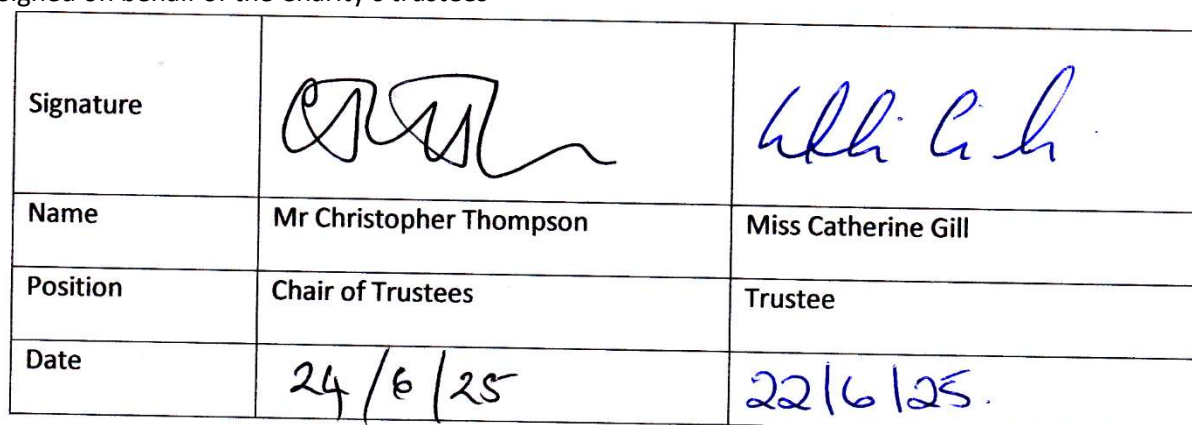 signed on behalf of the charity's trustees
Signature
Name Mr Christopher Thompson Miss Catherine Gill
Position Chair of Trustees Trustee
Date 24/6/25 22/6/25.